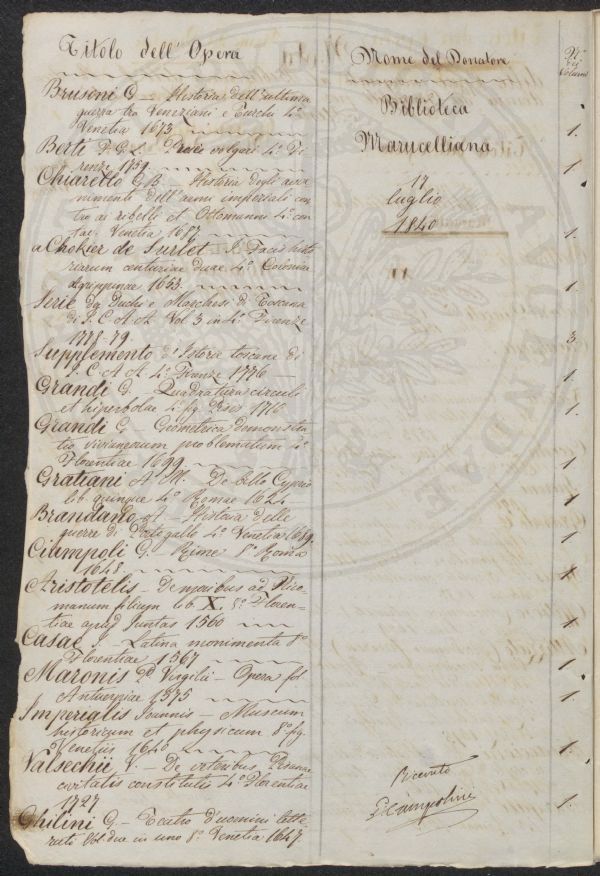 Titolo dell'Opera
Nome del Donatore
N.o dei Volumi
Brusoni G — Historia dell'ultima
guerra tra Veneziani e Turchi 4.o
Venetia 1673
1.
Berti P. G. L. Prose volgari 4.o Fi
renze 1759
1.
Chiarello G B — Historia degli avve
nimenti dell'armi imperiali con
tro ai ribelli et Ottomanni 4.o
Venetia 1687
1.
a Chokier de Surlet J. Facis histo
riarum centuriae duae 4.o Coloniae
Agrippinae 1653
1.
Serie de Duchi e Marchesi di Toscana
di I. C. A A. Vol 3 in 4.o Firenze
1778-79
3.
Supplemento d'Istoria toscana di
I. C. A A. 4.o Firenze 1776
1.
Grandi G. — Quadratura circuli
et hiperbolae 4.o fig. Pisis 1710
1.
Grandi G — Geometrica demonstra
tio vivianeorum problematum 4.o
Florentiae 1699
1
Gratiani A M. — De bello Cyprio
lib. quinque 4.o Romae 1624
1
Brandano A — Historia delle
guerre di Portogallo 4.o Venetia 1689.
1
Ciampoli G. Rime 8.o Roma
1648
1
Aristotelis — De moribus ad Nico
manum filium lib. X. 8.o Floren-
tiae apud Juntas 1560
1
Casae J. — Latina monimenta 8.o
Florentiae 1567
1
Maronis P. Virgilii — Opera fol
Antuerpiae 1575
1
Imperialis Ioannis — Museum
historicum et physicum 8.o fig.
Venetiis 1640
1.
Valsechii V. — De veteribus Pisanae
civitatis constitutis 4.o Florentiae
1727
1.
Ghilini G. — Teatro d'uomini lette
rati vol due in uno 8.o Venetia 1647.
Biblioteca
Marucelliana
17
luglio
1840
11
Ricevuto